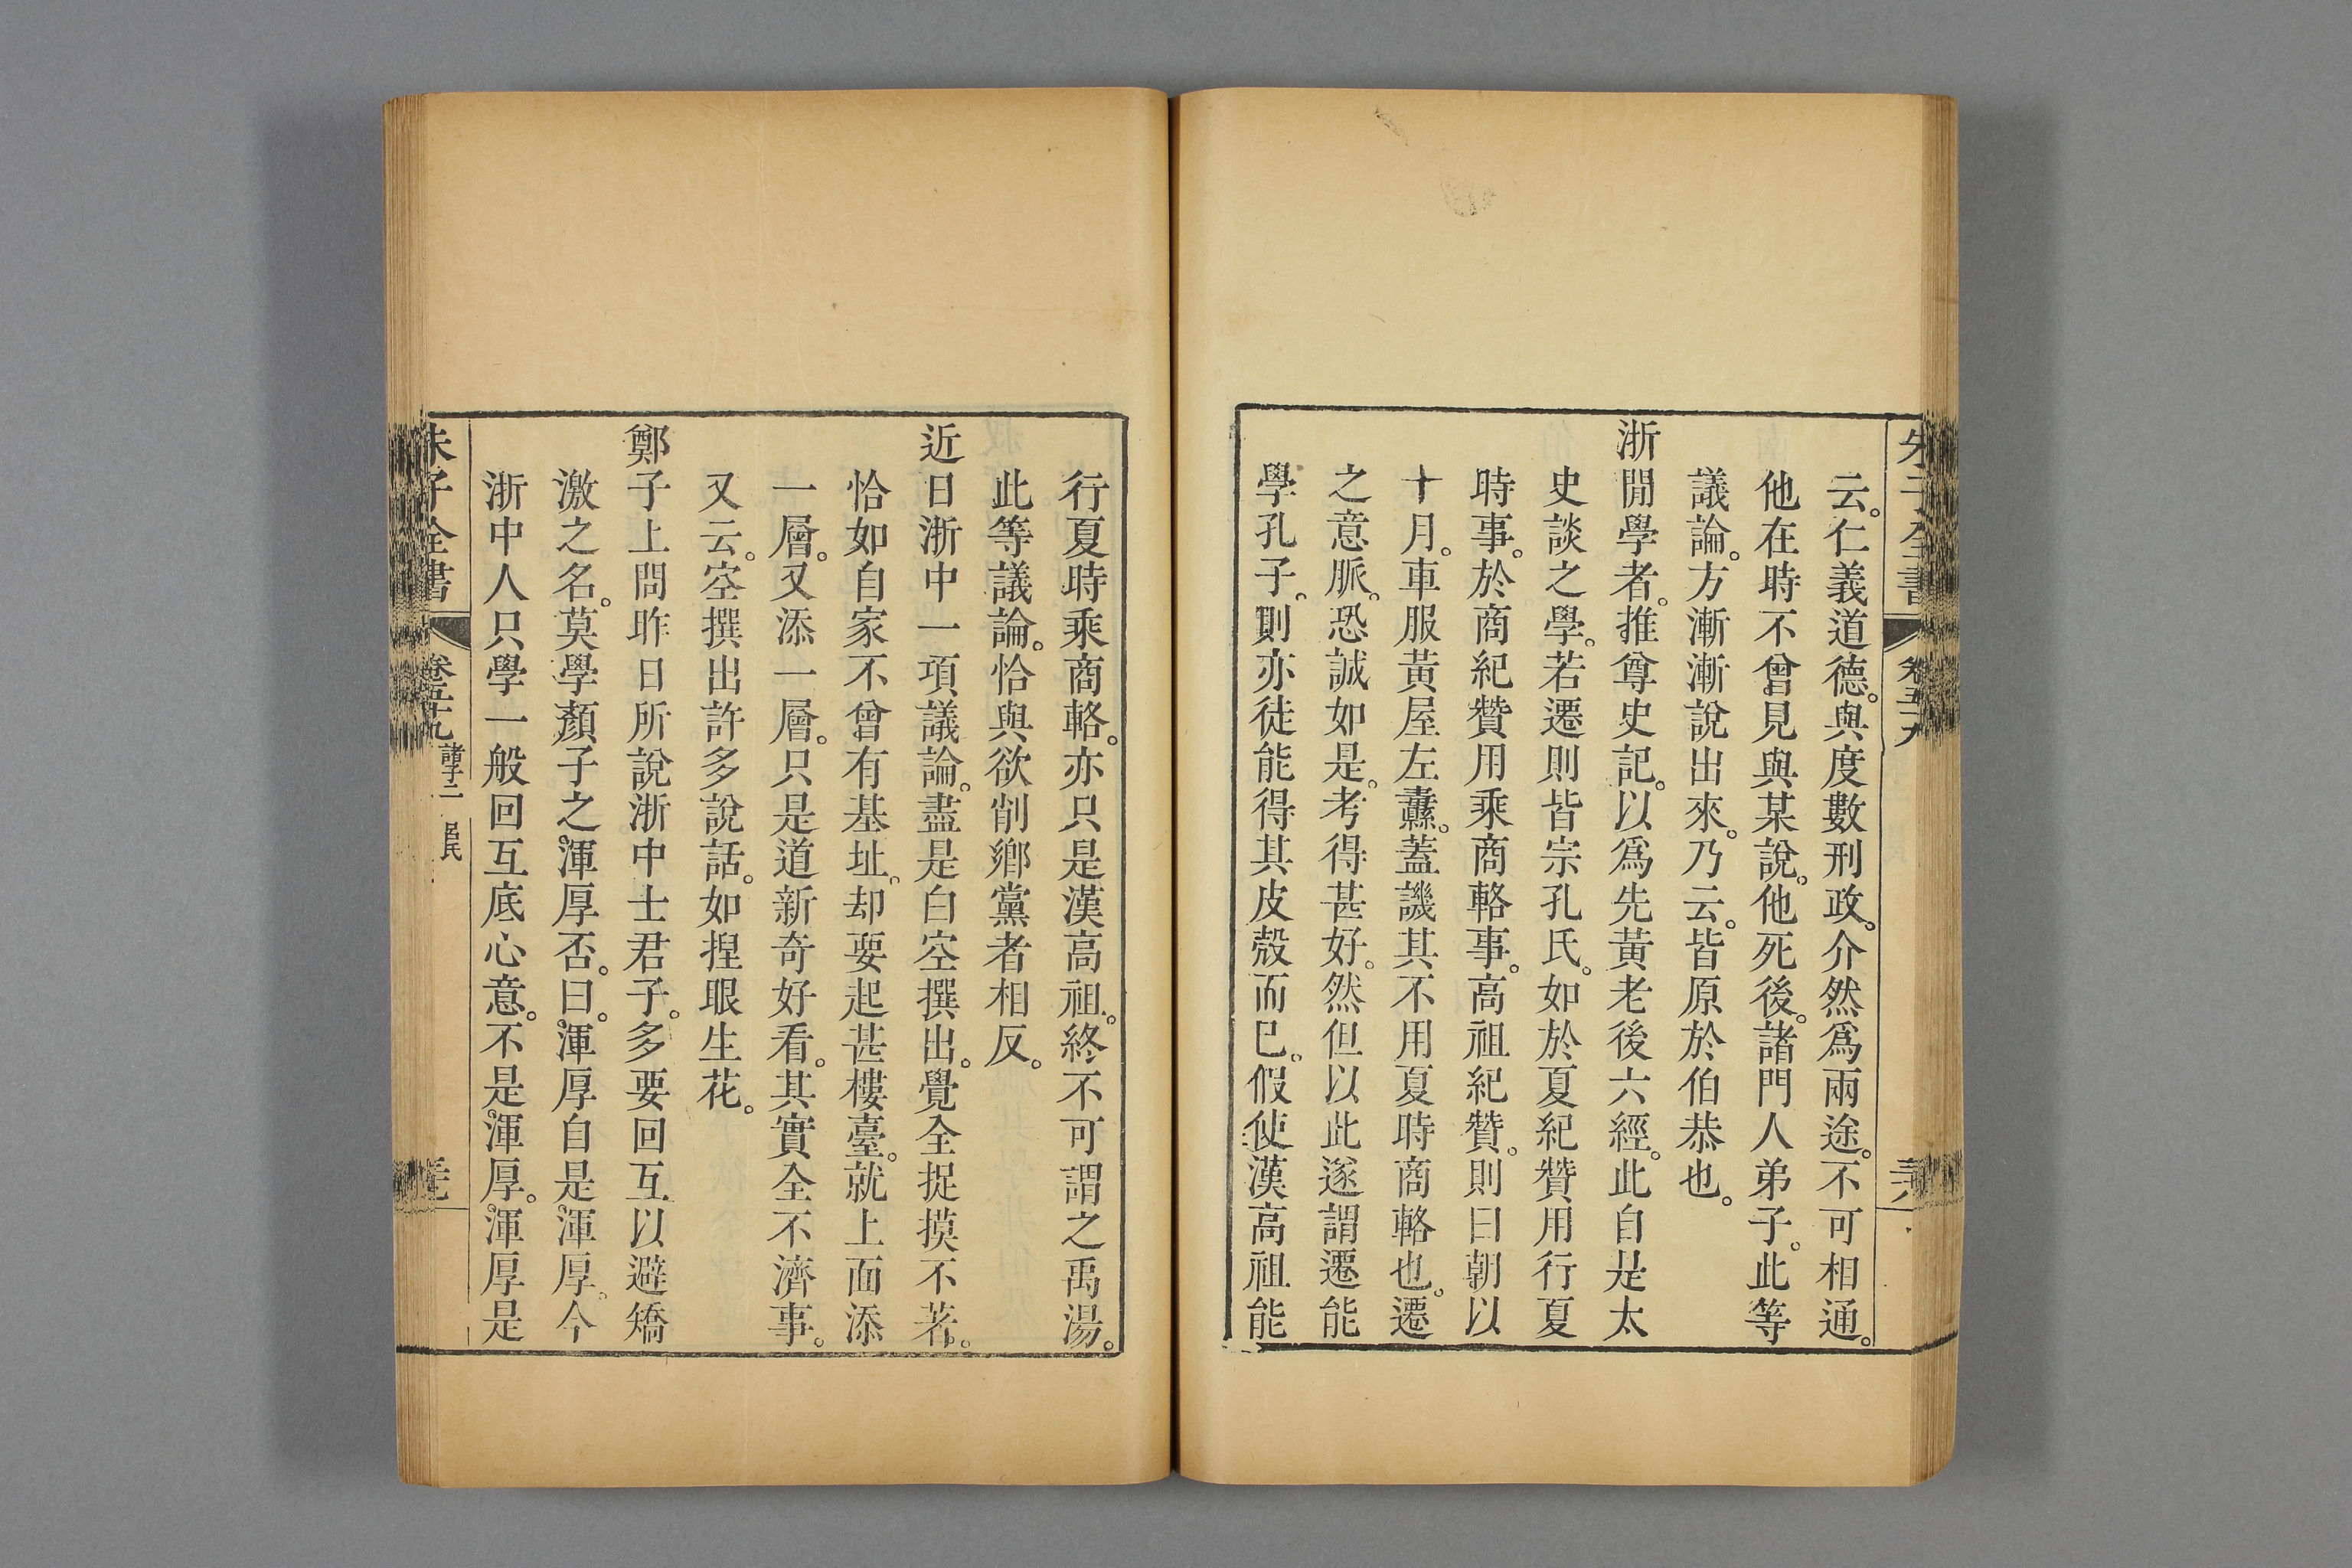 云。仁義道德。與度數刑政。介然爲兩途。不可相通。
他在時不曾見與某說。他死後。諸門人弟子。此等
議論。方漸漸說出來。乃云。皆原於伯恭也。
浙閒學者。推尊史記。以爲先黃老後六經。此自是太
史談之學。若遷則皆宗孔氏。如於夏紀贊用行夏
時事。於商紀贊用乘商輅事。高祖紀贊。則曰朝以
十月。車服黃屋左纛。蓋譏其不用夏時商輅也。遷
之意脈。恐誠如是。考得甚好。然但以此遂謂遷能
學孔子。則亦徒能得其皮殼而已。假使漢高祖能
行夏時乘商輅。亦只是漢高祖。終不可謂之禹湯。
此等議論。恰與欲削鄉黨者相反。
近日浙中一項議論。盡是白空撰出。覺全捉摸不著。
恰如自家不曾有基址。却要起甚樓臺。就上面添
一層。又添一層。只是道新奇好看。其實全不濟事。
又云。空撰出許多說話。如捏眼生花。
鄭子上問昨日所說浙中士君子。多要回互以避矯
激之名。莫學顏子之渾厚否。曰。渾厚自是渾厚。今
浙中人只學一般回互底心意。不是渾厚。渾厚是
朱子全書
卷五十九
諸子二